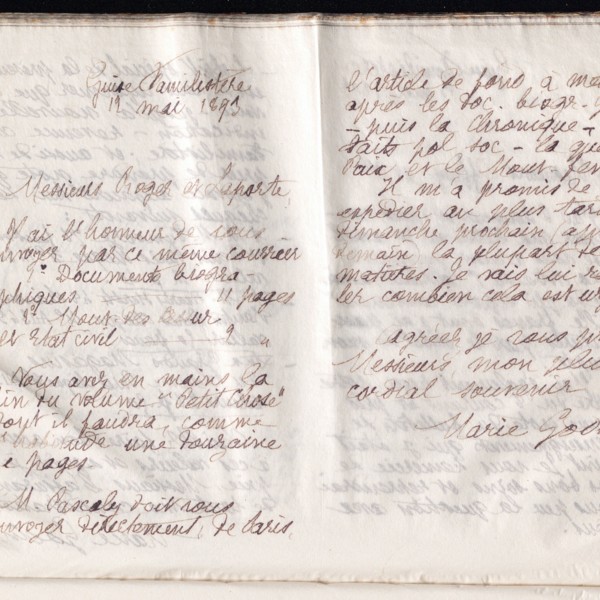 Guise Familistère
12 mai 1893
Messieurs Roger et Laporte,
J'ai l'honneur de vous
envoyer par ce même courrier
1° Documents biogra
phiques 11 pages
2° Mouv. des Assur
et état civil 2 "
Vous avez en mains la
fin du volume "Petit Chose"
dont il faudra, comme
d'habitude une douzaine
de pages.
M. Pascaly doit vous
envoyer directement, de Paris,
l'article de fond à me
après les Doc. biogr.
- puis la Chronique -
Faits pol soc - la
Paix et le Mouv. fém
Il m'a promis de
expédier au plus tard
dimanche prochain
demain) la plupart de
matières. Je vais lui
ler combien cela est
Agréez je vous
Messieurs mon plus
cordial souvenir
Marie God